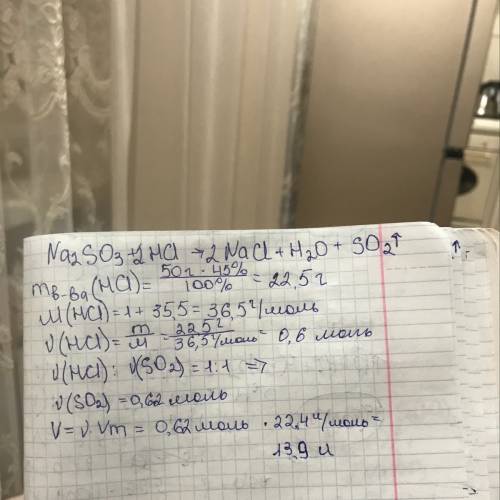 Na₂SO₃+2HCl → 2NaCl + H₂O + SO₂↑
m в-ва (HCl) = 50г · 45% / 100% = 22,5 г
M(HCl) = 1 + 35,5 = 36,5 г/моль
ν(HCl) = m/M = 22,5г / 36,5 г/моль = 0,6 моль
ν(HCl) : ν(SO₂) = 1:1 =>
ν(SO₂) = 0,62 моль
V = ν · Vm = 0,62 моль · 22,4 л/моль =
13,9 л